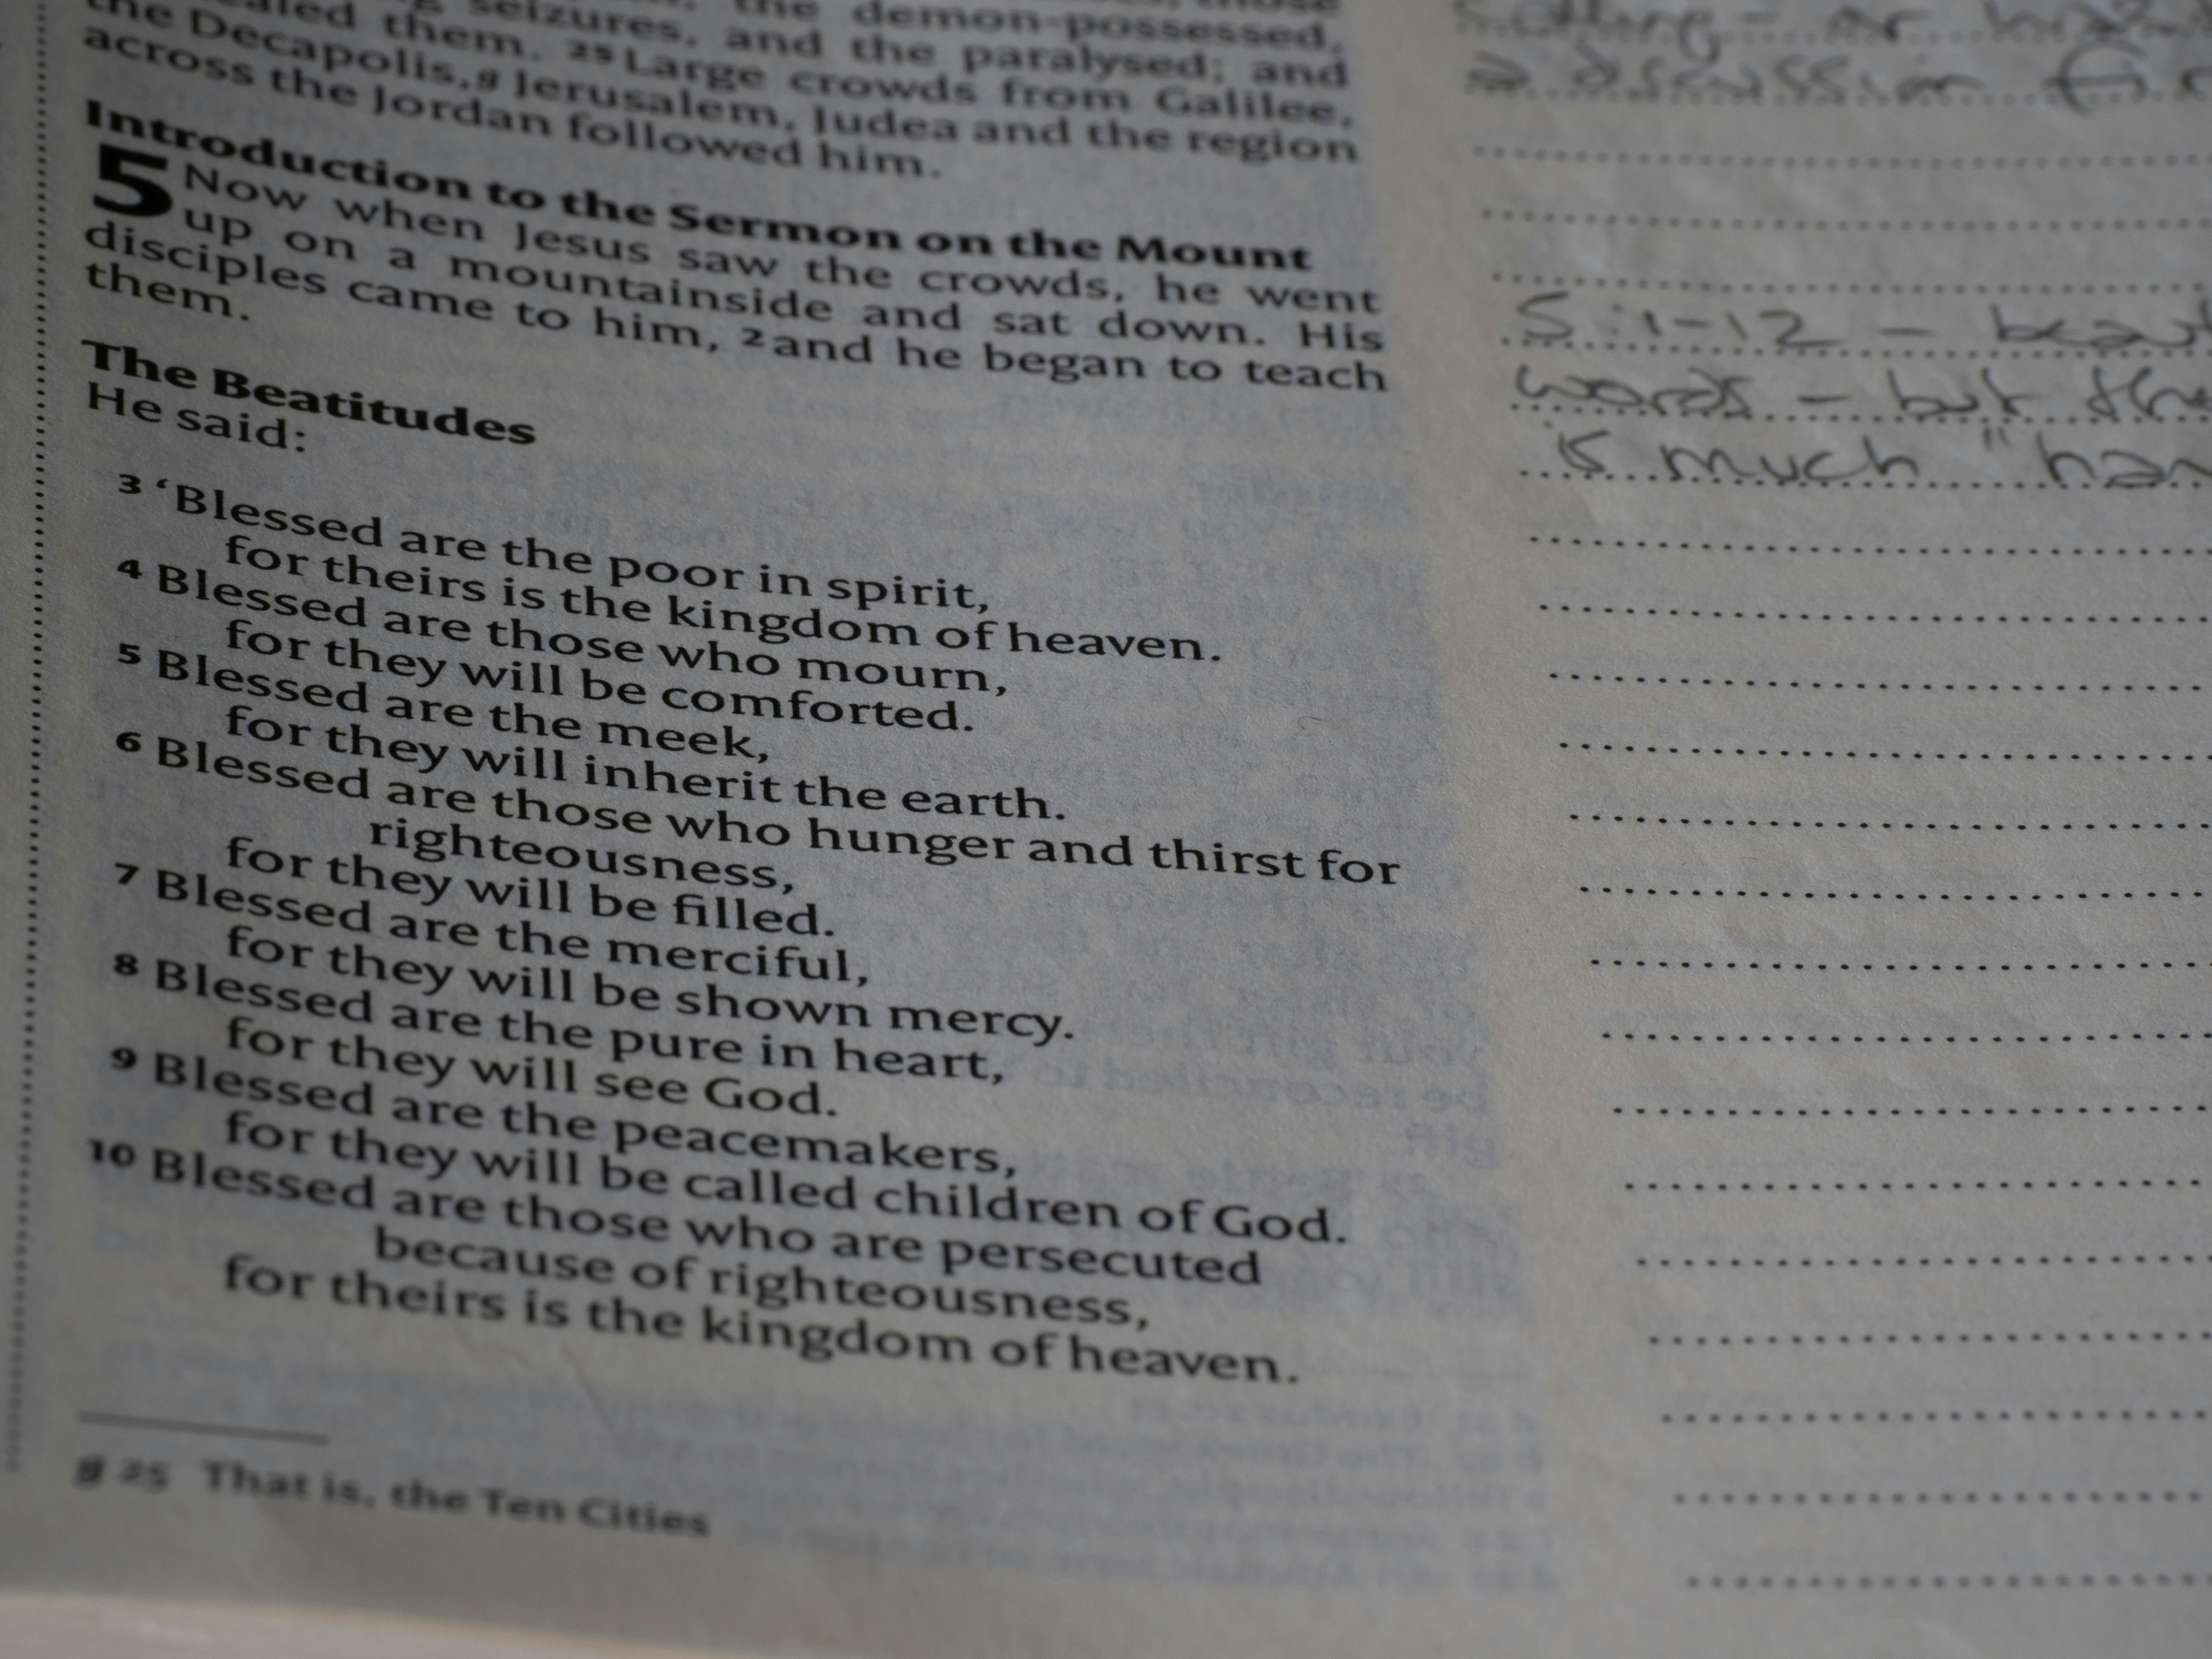 seizures, and the demon-possessed,
healed them. 25 Large crowds from Galilee,
the Decapolis,g Jerusalem, Judea and the region
across the Jordan followed him.
Introduction to the Sermon on the Mount
5 Now when Jesus saw the crowds, he went
up on a mountainside and sat down. His
disciples came to him, 2 and he began to teach
them.
The Beatitudes
He said:
3 ‘Blessed are the poor in spirit,
for theirs is the kingdom of heaven.
4 Blessed are those who mourn,
for they will be comforted.
5 Blessed are the meek,
for they will inherit the earth.
6 Blessed are those who hunger and thirst for
righteousness,
for they will be filled.
7 Blessed are the merciful,
for they will be shown mercy.
8 Blessed are the pure in heart,
for they will see God.
9 Blessed are the peacemakers,
for they will be called children of God.
10 Blessed are those who are persecuted
because of righteousness,
for theirs is the kingdom of heaven.
g 25 That is, the Ten Cities
discussion
5:1-12 -
words - but
is much "